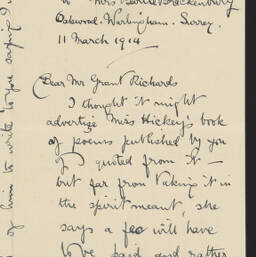 Mrs
Oakwood. Warlingham. Surrey.
11 March 1914
Dear Mr Grant Richards
I thought it might
advertize Miss Hickey's book
of poems published by you
if I quoted from it —
but far from taking it in
the spirit meant, she
says a fee will have
to be paid and rather
to write to you saying I